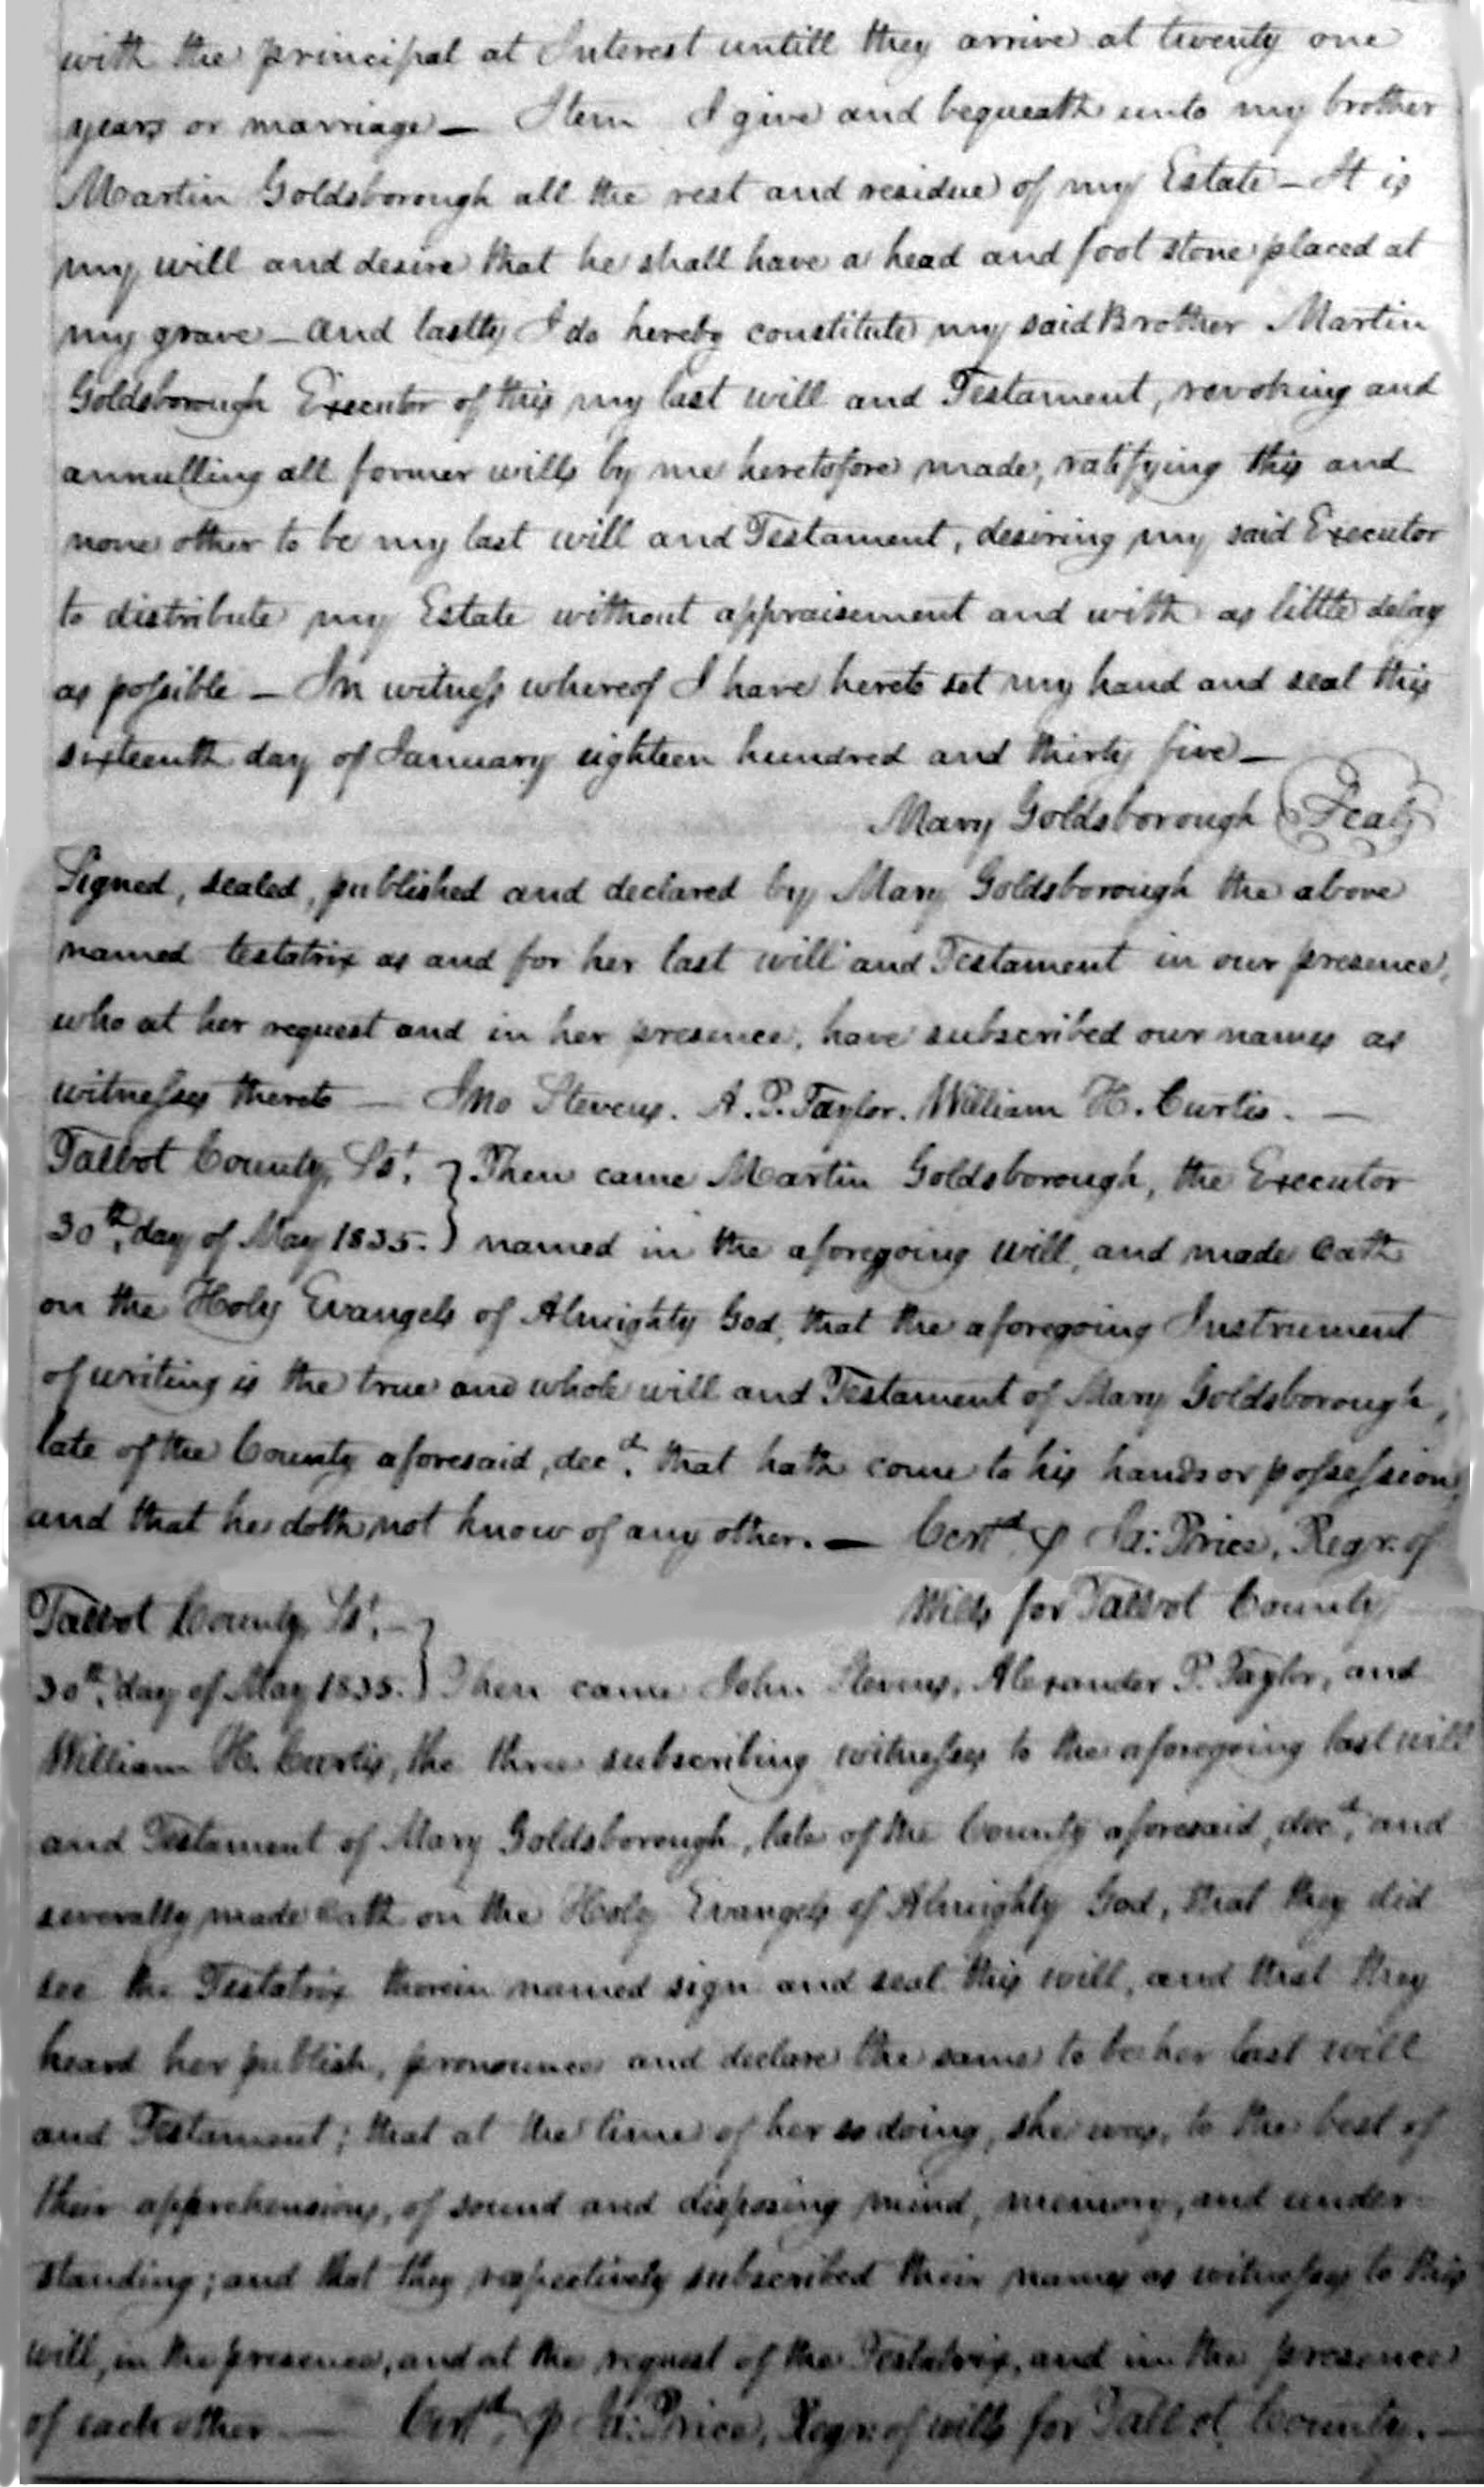 with the principal at Interest untill they arrive at twenty one
years or marriage — Item I give and bequeath unto my brother
Martin Goldsborough all the rest and residue of my Estate – It is
my will and desire that he shall have a head and foot stone placed at
my grave – and lastly I do hereby constitute my said Brother Martin
Goldsborough Executor of this my last will and Testament, revoking and
annulling all former wills by me heretofore made, ratifying this and
none other to be my last will and Testament, desiring my said Executor
to distribute my Estate without appraisement and with as little delay
as possible – In witness whereof I have hereto set my hand and seal this
sixteenth day of January eighteen hundred and thirty five –
Mary Goldsborough Seal
Signed, sealed, published and declared by Mary Goldsborough the above
named testatrix as and for her last will and Testament in our presence,
who at her request and in her presence, have subscribed our names as
witnesses thereto — Jno Stevens. A. P. Taylor. William H. Curtis. —
Talbot County, Sst. } Then came Martin Goldsborough, the Executor
30th. day of May 1835. } named in the aforegoing will, and made Oath
on the Holy Evangels of Almighty God, that the aforegoing Instrument
of writing is the true and whole will and Testament of Mary Goldsborough,
late of the County aforesaid, decd. that hath come to his hands or possession,
and that he doth not know of any other. — Certd. p Ja: Price, Regr. of
Wills for Talbot County
Talbot County, Sst. }
30th. day of May 1835. } Then came John Stevens, Alexander P. Taylor, and
William H. Curtis, the three subscribing witnesses to the aforegoing last will
and Testament of Mary Goldsborough, late of the County aforesaid, decd., and
severally made Oath on the Holy Evangels of Almighty God, that they did
see the Testatrix therein named sign and seal this will, and that they
heard her publish, pronounce and declare the same to be her last will
and Testament; that at the time of her so doing, she was, to the best of
their apprehensions, of sound and disposing mind, memory, and under-
standing; and that they respectively subscribed their names as witnesses to this
will, in the presence, and at the request of the Testatrix, and in the presence
of each other — Certd. p Ja: Price, Regr. of wills for Talbot County. —